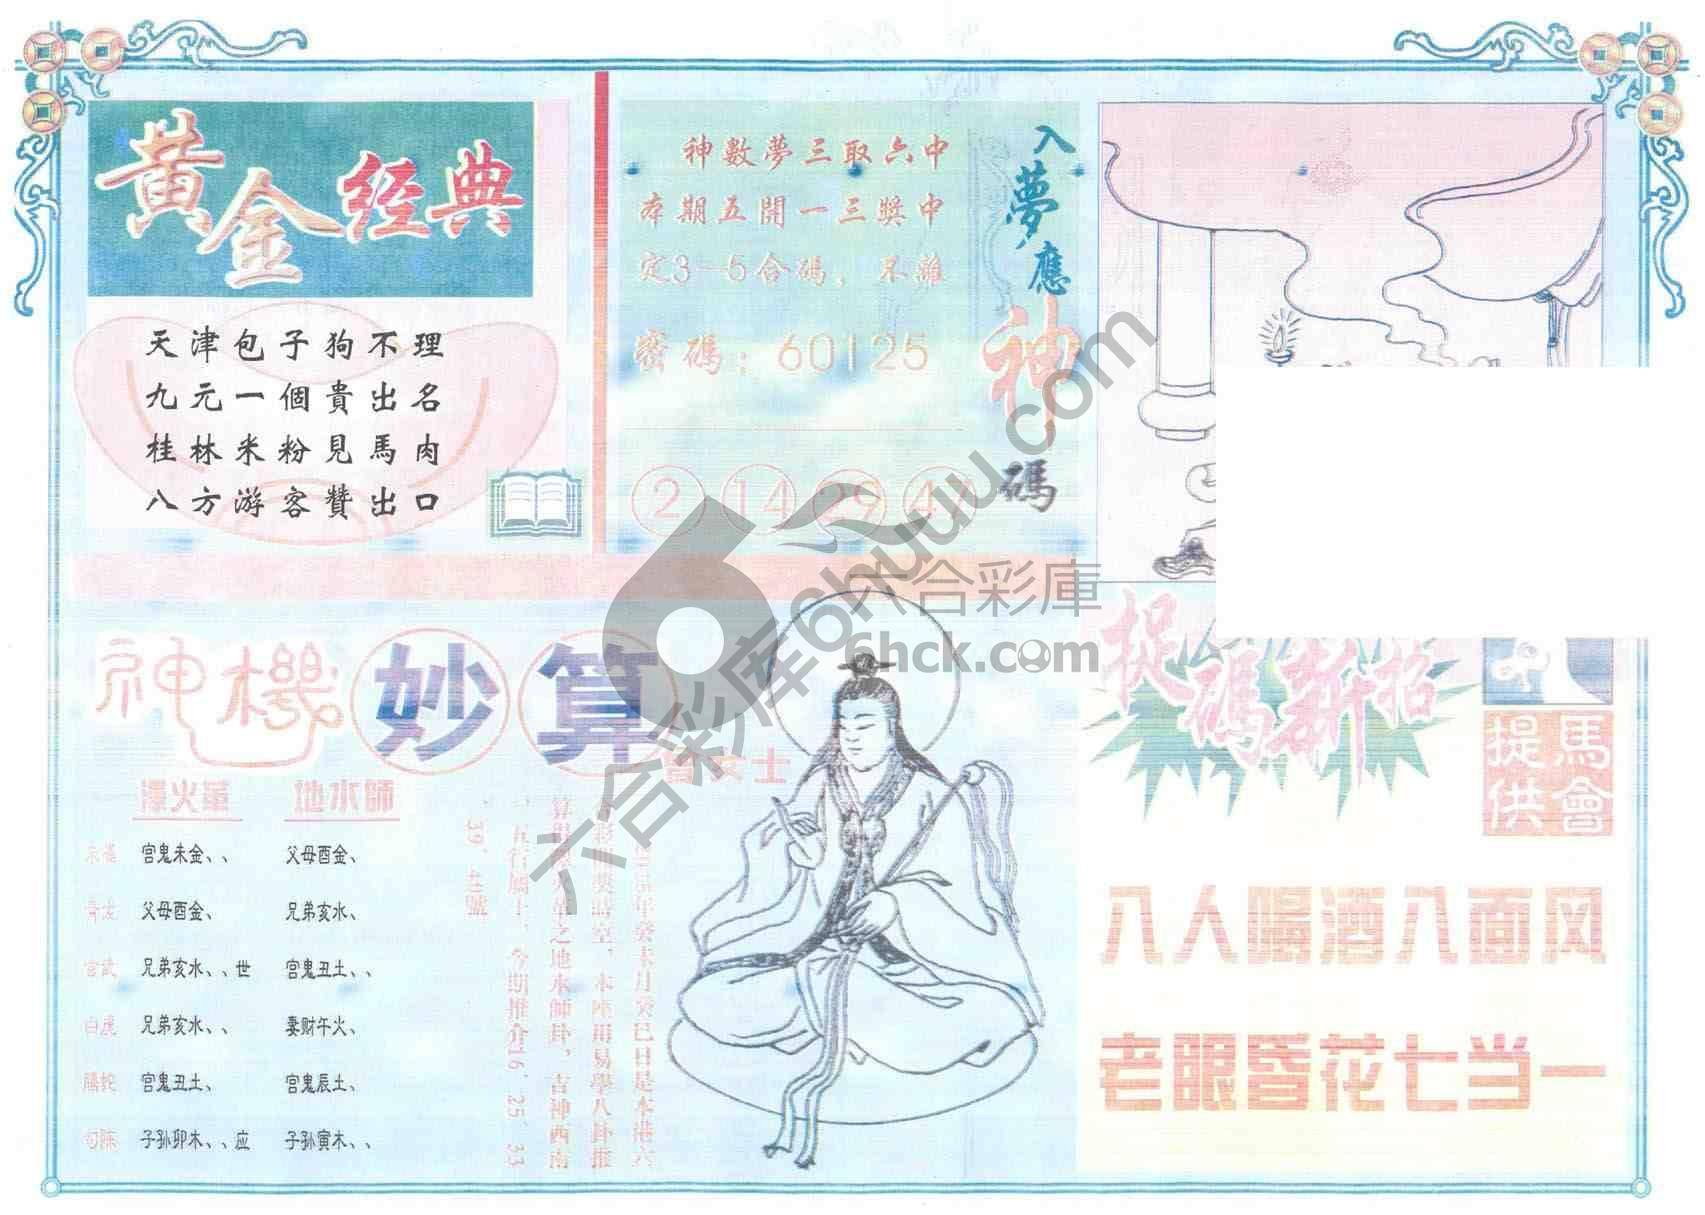 黄金经典
天津包子狗不理
九元一個貴出名
桂林米粉見馬肉
八方游客贊出口
神數夢三取六中
本期五開一三獎中
定3—5合碼，不離
密碼：60125
2 14 29 41
入夢應神碼
神機妙算
地水師
宫鬼未金、、 父母酉金、
父母酉金、 兄弟亥水、
兄弟亥水、、世 宫鬼丑土、、
白虎 兄弟亥水、、 妻财午火、
宫鬼丑土、 宫鬼辰土、
子孙卯木、、应 子孙寅木、、
年癸未月癸巳日是本港六
時空，本座用易學八卦推
之地水師卦，吉神西南
今期推介16、25、33
捉碼新招
馬會提供
八人喝酒八面风
老眼昏花七当一
六合彩庫
6hck.com
六合彩库6huuu.com